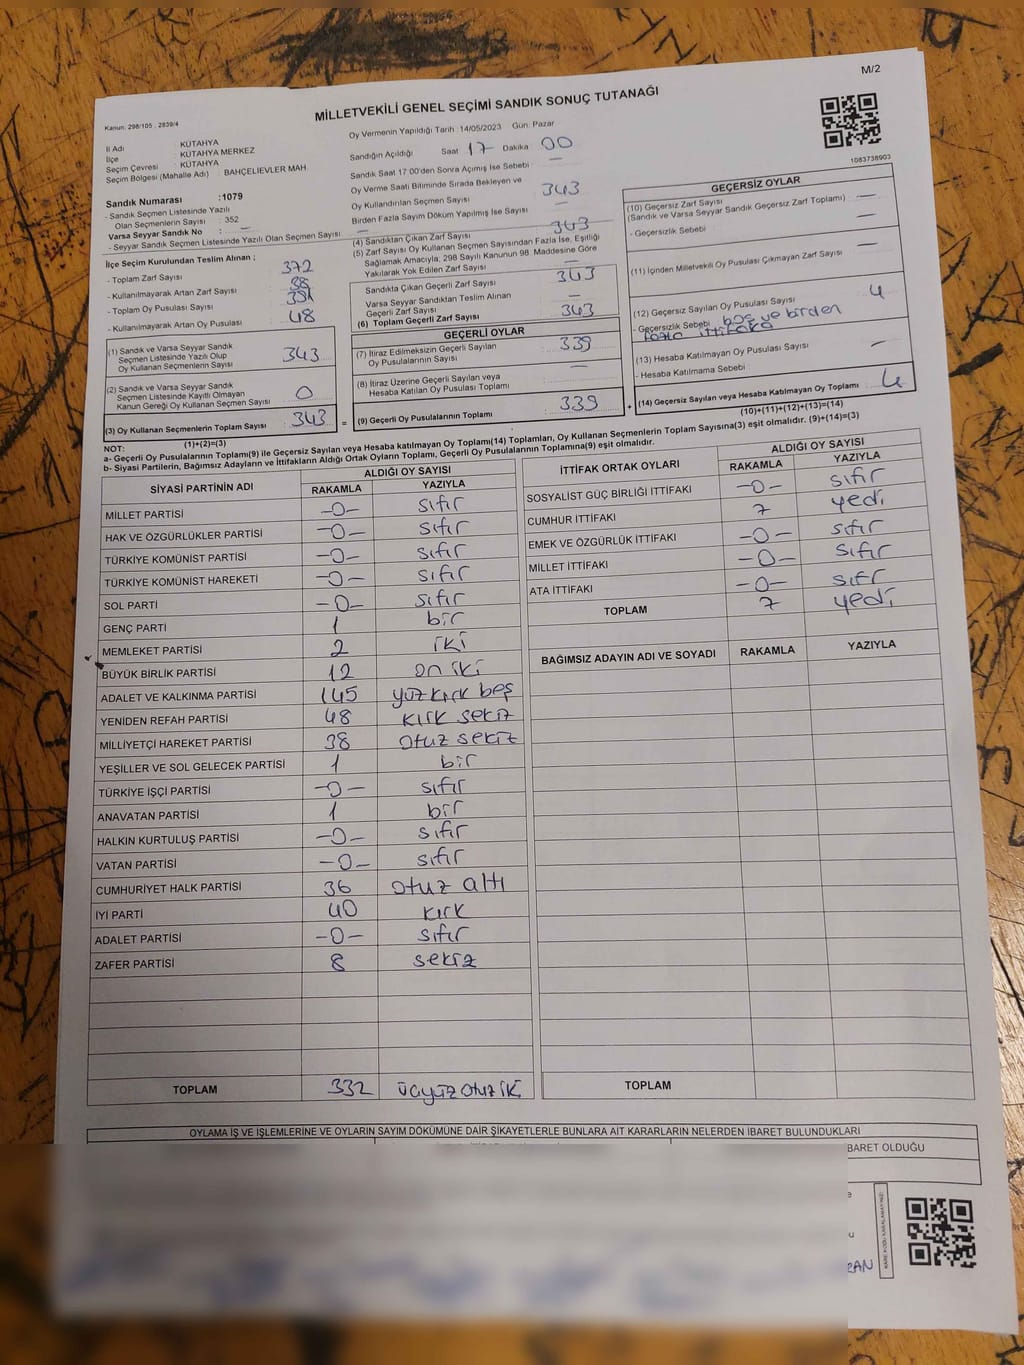 M/2
MİLLETVEKİLİ GENEL SEÇİMİ SANDIK SONUÇ TUTANAĞI
Kanun: 298/105 , 2839/4
1083738903
İl Adı : KÜTAHYA
İlçe : KÜTAHYA MERKEZ
Seçim Çevresi : KÜTAHYA
Seçim Bölgesi (Mahalle Adı) : BAHÇELİEVLER MAH
Sandık Numarası :1079
- Sandık Seçmen Listesinde Yazılı
Olan Seçmenlerin Sayısı : 352
Varsa Seyyar Sandık No : —
- Seyyar Sandık Seçmen Listesinde Yazılı Olan Seçmen Sayısı : —
Oy Vermenin Yapıldığı Tarih :14/05/2023 Gün: Pazar
Sandığın Açıldığı Saat 17 Dakika 00
Sandık Saat 17.00'den Sonra Açımış İse Sebebi : —
Oy Verme Saati Bitiminde Sırada Bekleyen ve
Oy Kullandırılan Seçmen Sayısı : 343
Birden Fazla Sayım Döküm Yapılmış İse Sayısı : —
İlçe Seçim Kurulundan Teslim Alınan ;
- Toplam Zarf Sayısı : 372
- Kullanılmayarak Artan Zarf Sayısı :
- Toplam Oy Pusulası Sayısı : 391
- Kullanılmayarak Artan Oy Pusulası : 48
(1) Sandık ve Varsa Seyyar Sandık
Seçmen Listesinde Yazılı Olup
Oy Kullanan Seçmenlerin Sayısı : 343
(2) Sandık ve Varsa Seyyar Sandık
Seçmen Listesinde Kayıtlı Olmayan
Kanun Gereği Oy Kullanan Seçmen Sayısı : 0
(3) Oy Kullanan Seçmenlerin Toplam Sayısı : 343
(1)+(2)=(3)
(4) Sandıktan Çıkan Zarf Sayısı : 343
(5) Zarf Sayısı Oy Kullanan Seçmen Sayısından Fazla İse, Eşitliği
Sağlamak Amacıyla; 298 Sayılı Kanunun 98. Maddesine Göre
Yakılarak Yok Edilen Zarf Sayısı : —
Sandıkta Çıkan Geçerli Zarf Sayısı : 343
Varsa Seyyar Sandıktan Teslim Alınan
Geçerli Zarf Sayısı : —
(6) Toplam Geçerli Zarf Sayısı : 343
GEÇERLİ OYLAR
(7) İtiraz Edilmeksizin Geçerli Sayılan
Oy Pusulalarının Sayısı : 339
(8) İtiraz Üzerine Geçerli Sayılan veya
Hesaba Katılan Oy Pusulası Toplamı : —
= (9) Geçerli Oy Pusulalarının Toplamı : 339 +
GEÇERSİZ OYLAR
(10) Geçersiz Zarf Sayısı
(Sandık ve Varsa Seyyar Sandık Geçersiz Zarf Toplamı) : —
- Geçersizlik Sebebi : —
(11) İçinden Milletvekili Oy Pusulası Çıkmayan Zarf Sayısı : —
(12) Geçersiz Sayılan Oy Pusulası Sayısı : 4
- Geçersizlik Sebebi : boş ve birden
fazla ittifaka
(13) Hesaba Katılmayan Oy Pusulası Sayısı : —
- Hesaba Katılmama Sebebi :
(14) Geçersiz Sayılan veya Hesaba Katılmayan Oy Toplamı : 4
(10)+(11)+(12)+(13)=(14)
NOT:
a- Geçerli Oy Pusulalarının Toplamı(9) ile Geçersiz Sayılan veya Hesaba katılmayan Oy Toplamı(14) Toplamları, Oy Kullanan Seçmenlerin Toplam Sayısına(3) eşit olmalıdır. (9)+(14)=(3)
b- Siyasi Partilerin, Bağımsız Adayların ve İttifakların Aldığı Ortak Oyların Toplamı, Geçerli Oy Pusulalarının Toplamına(9) eşit olmalıdır.
SİYASİ PARTİNİN ADI ALDIĞI OY SAYISI
RAKAMLA YAZIYLA
MİLLET PARTİSİ -0- sıfır
HAK VE ÖZGÜRLÜKLER PARTİSİ -0- sıfır
TÜRKİYE KOMÜNİST PARTİSİ -0- sıfır
TÜRKİYE KOMÜNİST HAREKETİ -0- sıfır
SOL PARTİ -0- sıfır
GENÇ PARTİ 1 bir
MEMLEKET PARTİSİ 2 iki
BÜYÜK BİRLİK PARTİSİ 12 on iki
ADALET VE KALKINMA PARTİSİ 145 yüz kırk beş
YENİDEN REFAH PARTİSİ 48 kırk sekiz
MİLLİYETÇİ HAREKET PARTİSİ 38 otuz sekiz
YEŞİLLER VE SOL GELECEK PARTİSİ 1 bir
TÜRKİYE İŞÇİ PARTİSİ -0- sıfır
ANAVATAN PARTİSİ 1 bir
HALKIN KURTULUŞ PARTİSİ -0- sıfır
VATAN PARTİSİ -0- sıfır
CUMHURİYET HALK PARTİSİ 36 otuz altı
İYİ PARTİ 40 kırk
ADALET PARTİSİ -0- sıfır
ZAFER PARTİSİ 8 sekiz
TOPLAM 332 üçyüz otuz iki
İTTİFAK ORTAK OYLARI ALDIĞI OY SAYISI
RAKAMLA YAZIYLA
SOSYALİST GÜÇ BİRLİĞİ İTTİFAKI -0- sıfır
CUMHUR İTTİFAKI 7 yedi
EMEK VE ÖZGÜRLÜK İTTİFAKI -0- sıfır
MİLLET İTTİFAKI -0- sıfır
ATA İTTİFAKI -0- sıfr
TOPLAM 7 yedi
BAĞIMSIZ ADAYIN ADI VE SOYADI RAKAMLA YAZIYLA
TOPLAM
OYLAMA İŞ VE İŞLEMLERİNE VE OYLARIN SAYIM DÖKÜMÜNE DAİR ŞİKAYETLERLE BUNLARA AİT KARARLARIN NELERDEN İBARET BULUNDUKLARI
BARET OLDUĞU